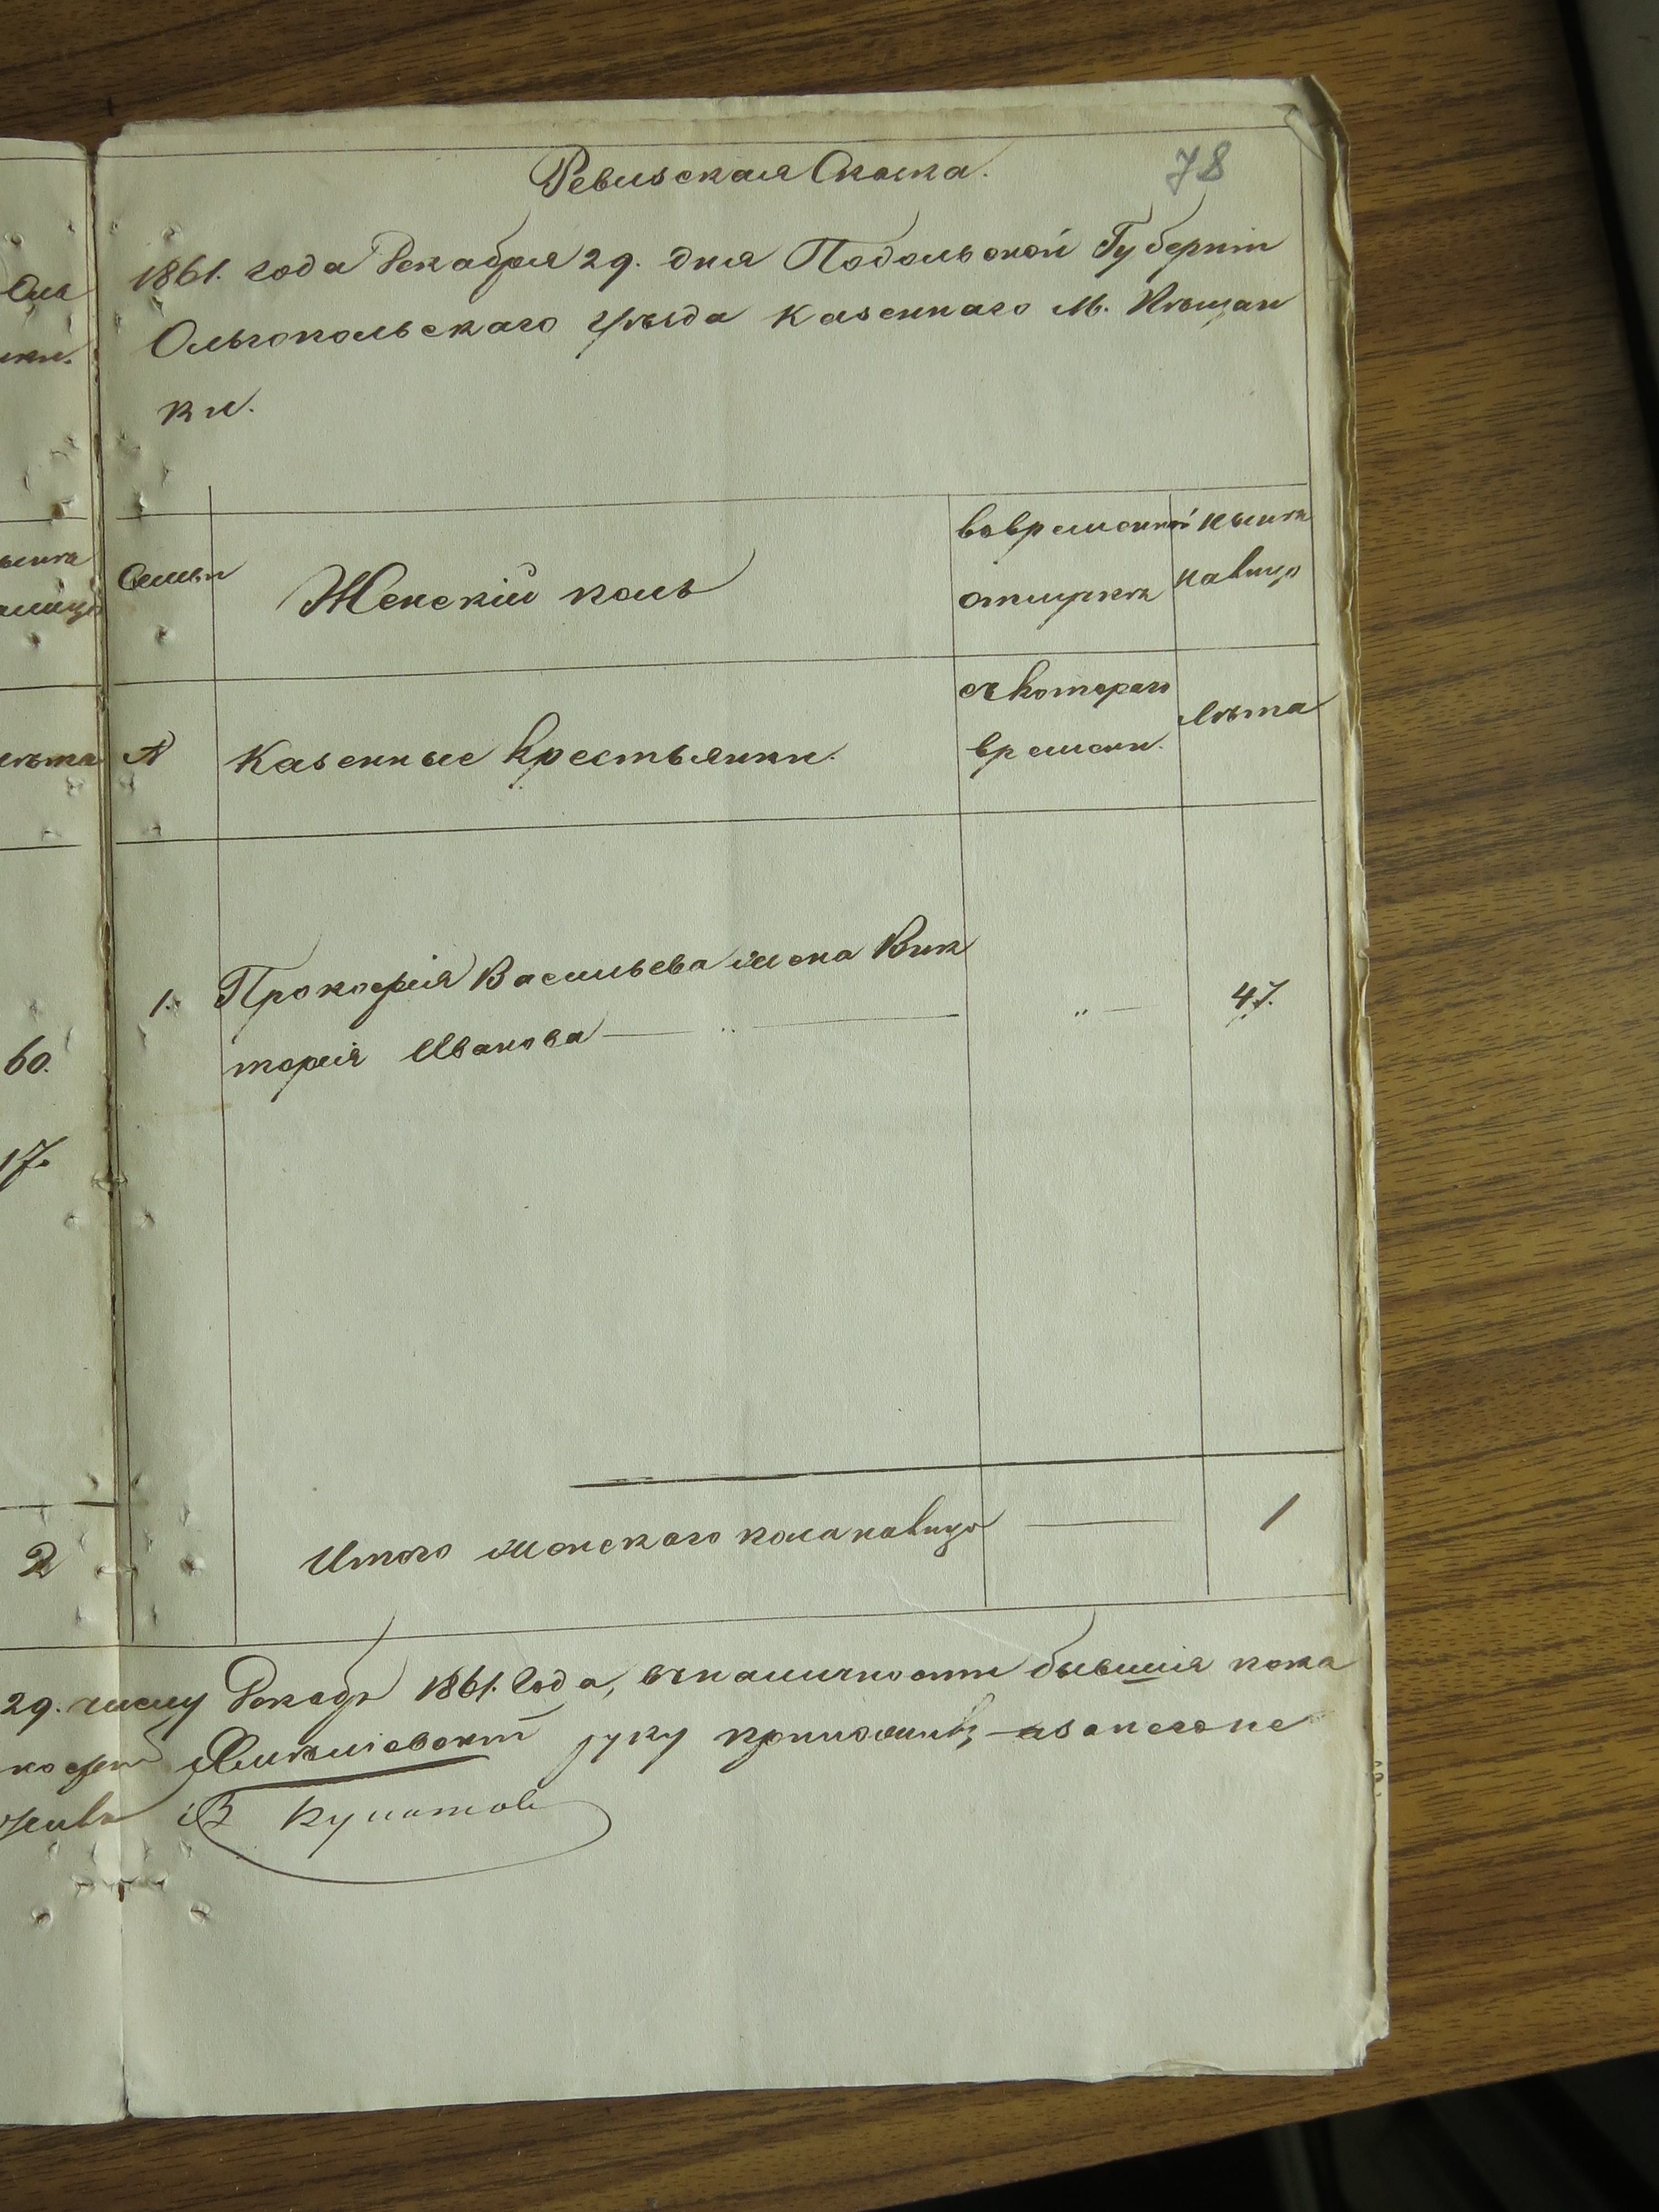 78
Ревизская Скаска.
1861. года Декабря 29. дня Подольской Губерніи
Ольгопольскаго уѣзда казеннаго м. Пѣщан
ки.
Семьи
Женскій полъ
вовременной
отлучкѣ
нынѣ
налицо
№
Казенные крестьянки.
съ котораго
времени.
Лѣта
1.
Прокофія Васильева жена Вик
торія Иванова — " —
" —
47.
Итого женскаго пола налицо
—
1
60.
17.
2
29. числу Декабр 1861. Года, вналичности бывшія пока
руку приложилъ,